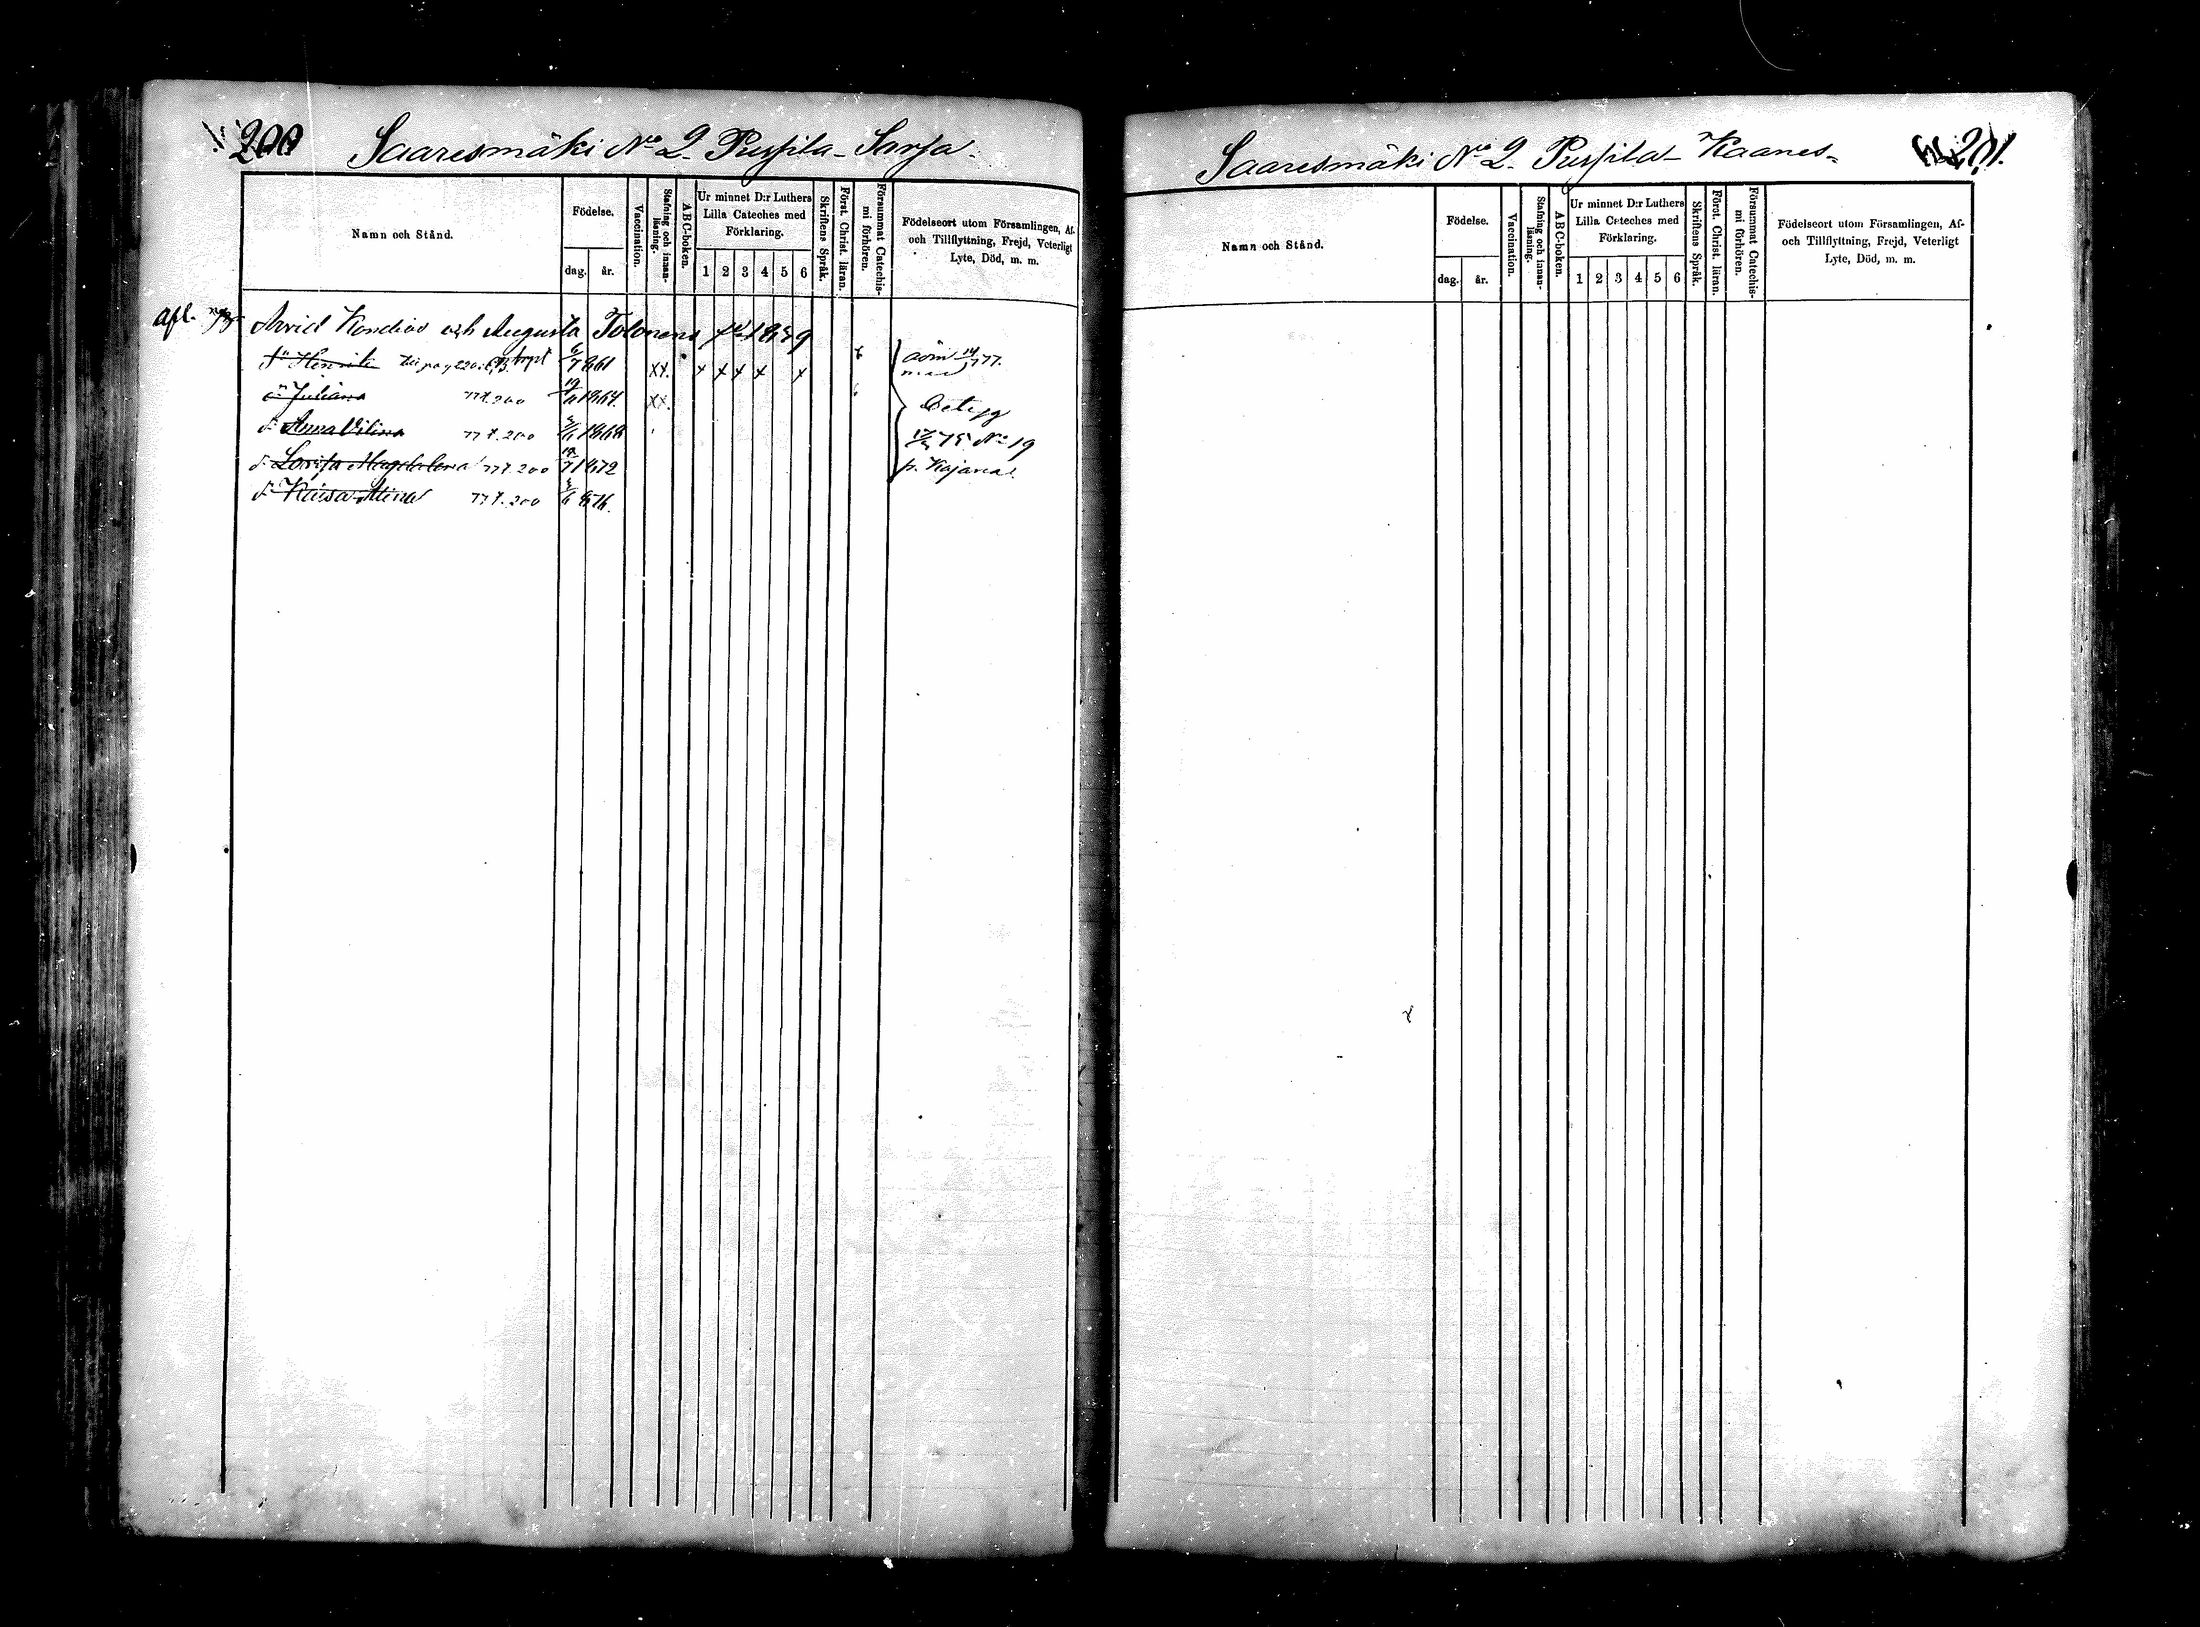 200 Saaresmäki No 2 Puspila - Sarja.
Namn och Stånd.
Födelse.
dag. år.
Vaccination.
Stafning och innanläsning.
ABC-boken.
Ur minnet D:r Luthers
Lilla Cateches med
Förklaring.
1 2 3 4 5 6
Skriftens Språk.
Först. Christ. läran.
Försummat Catechismi förhören.
Födelseort utom Församlingen, Af-
och Tillflyttning, Frejd, Veterligt
Lyte, Död, m. m.
afl. Arvid och Augusta Tolonens 1859
Henrik 1861 xx. x x x x x
Juliana 77 f. 200 19 1864 xx.
d: Anna Vilina 77 f. 200 1868
d: Lovisa Magdalena 77 f. 200 1872
d: Kaisa Stina 77 f. 200 876.
77.
Betyg
17 75 No 19
p. Kajana
Saaresmäki No 2 Puspila - Kaanes= 201.
Namn och Stånd.
Födelse.
dag. år.
Vaccination.
Stafning och innanläsning.
ABC-boken.
Ur minnet D:r Luthers
Lilla Cateches med
Förklaring.
1 2 3 4 5 6
Skriftens Språk.
Först. Christ. läran.
Försummat Catechismi förhören.
Födelseort utom Församlingen, Af-
och Tillflyttning, Frejd, Veterligt
Lyte, Död, m. m.